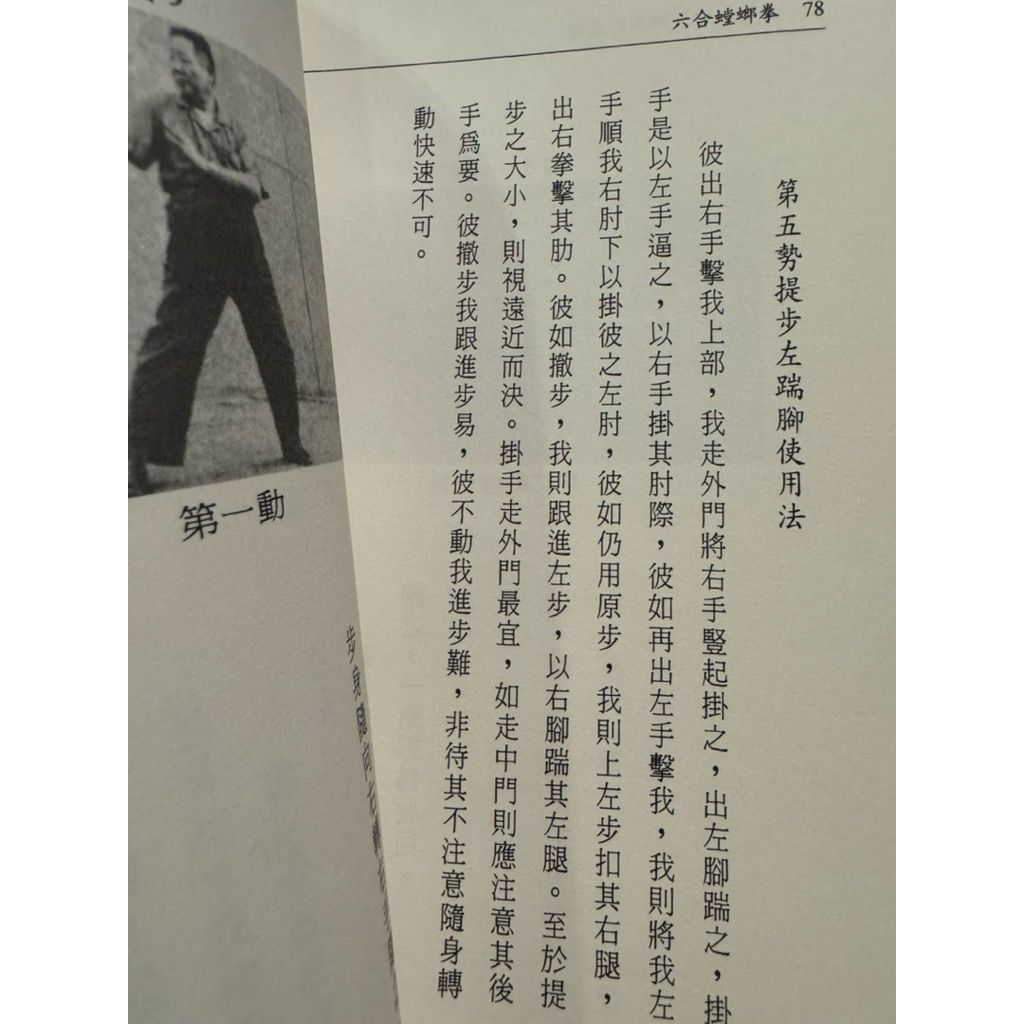 六合螳螂拳 78
第五勢提步左踹腳使用法
彼出右手擊我上部，我走外門將右手豎起掛之，出左腳踹之，掛
手是以左手逼之，以右手掛其肘際，彼如再出左手擊我，我則將我左
手順我右肘下以掛彼之左肘，彼如仍用原步，我則上左步扣其右腿，
出右拳擊其肋。彼如撤步，我則跟進左步，以右腳踹其左腿。至於提
步之大小，則視遠近而決。掛手走外門最宜，如走中門則應注意其後
手爲要。彼撤步我跟進步易，彼不動我進步難，非待其不注意隨身轉
動快速不可。
第一動
步身隨向右轉